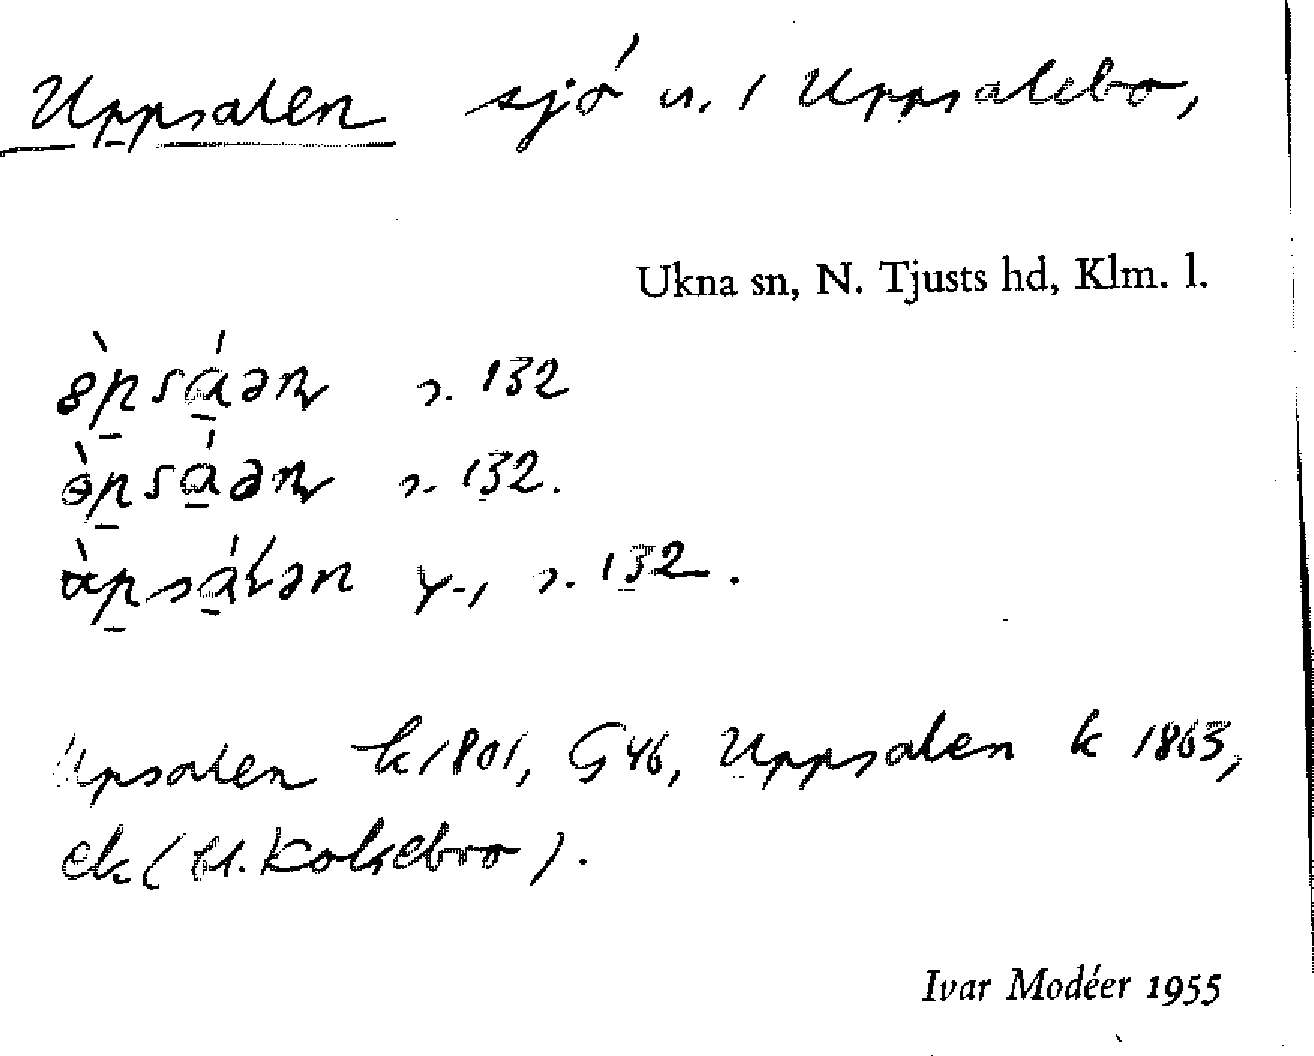 Uppsalen sjö u. / Uppsalebo,
Ukna sn, N. Tjusts hd, Klm. l.
s. 132
s. 132.
y-, s. 132.
Upsalen k 1801, G 46, Uppsalen k 1863,
ek (U. Kolsebro).
Ivar Modéer 1955